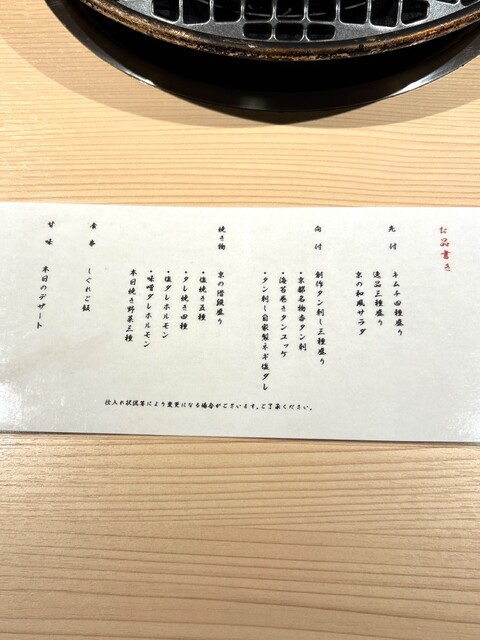 お品書き
先付
キムチ四種盛り
逸品三種盛り
京の和風サラダ
向付
創作タン刺し三種盛り
・京都名物壺タン刺
・海苔巻きタンユッケ
・タン刺し自家製ネギ塩ダレ
焼き物
京の階段盛り
・塩焼き五種
・タレ焼き四種
・塩ダレホルモン
・味噌ダレホルモン
本日焼き野菜三種
食事
しぐれご飯
甘味
本日のデザート
仕入れ状況等により変更になる場合がございます。ご了承ください。